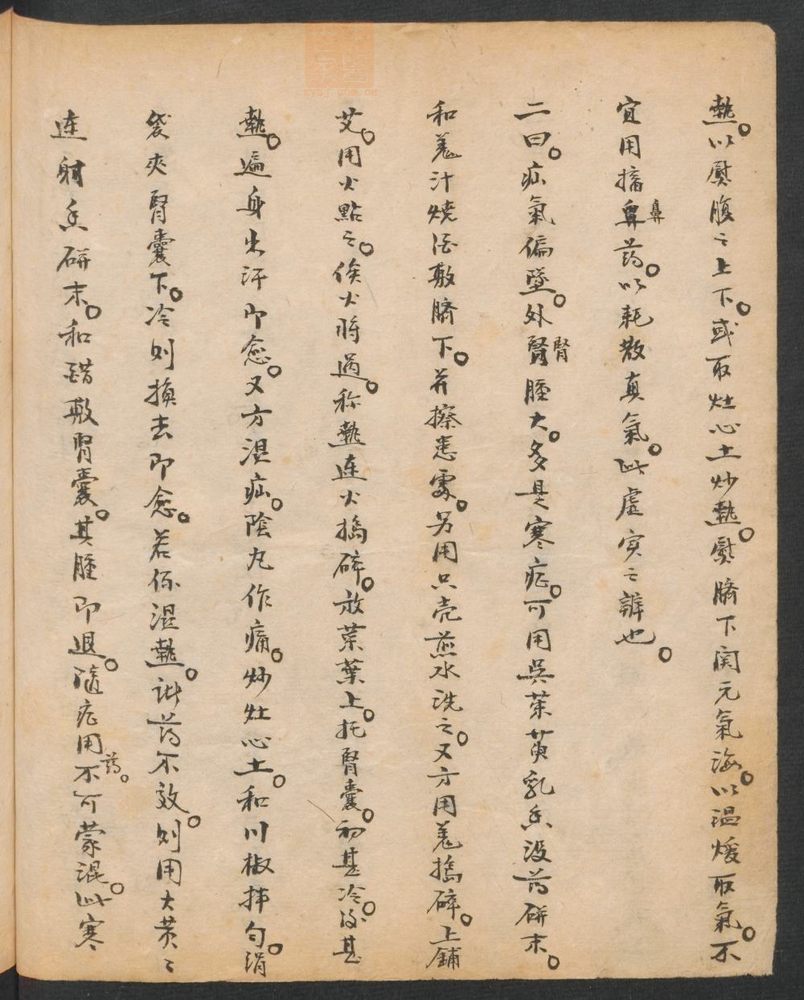 熱。以熨腹之上下。或取灶心土炒熱。熨臍下関元氣海。以温煖取氣。不
宜用擂鼻鼻药。以耗散真氣。此虛实之辨也。
二曰。疝氣偏墜。外腎腎腫大。多是寒症。可用吳茱萸乳香没药研末。
和羗汁燒酒敷臍下。并擦患處。另用只壳煎水洗之。又方用羗搗碎。上鋪
艾。用火點之。俟火將過。称熱連火搗碎。放菜葉上。托腎囊。初甚冷。後甚
熱。遍身出汗即愈。又方湿疝。陰丸作痛。炒灶心土。和川椒拌匀。绢
袋夾腎囊下。冷则換去即愈。若係湿熱。此药不效。则用大黄〻
连射香研末。和醋敷腎囊。其腫即退。隨症用药。不可蒙混。此寒